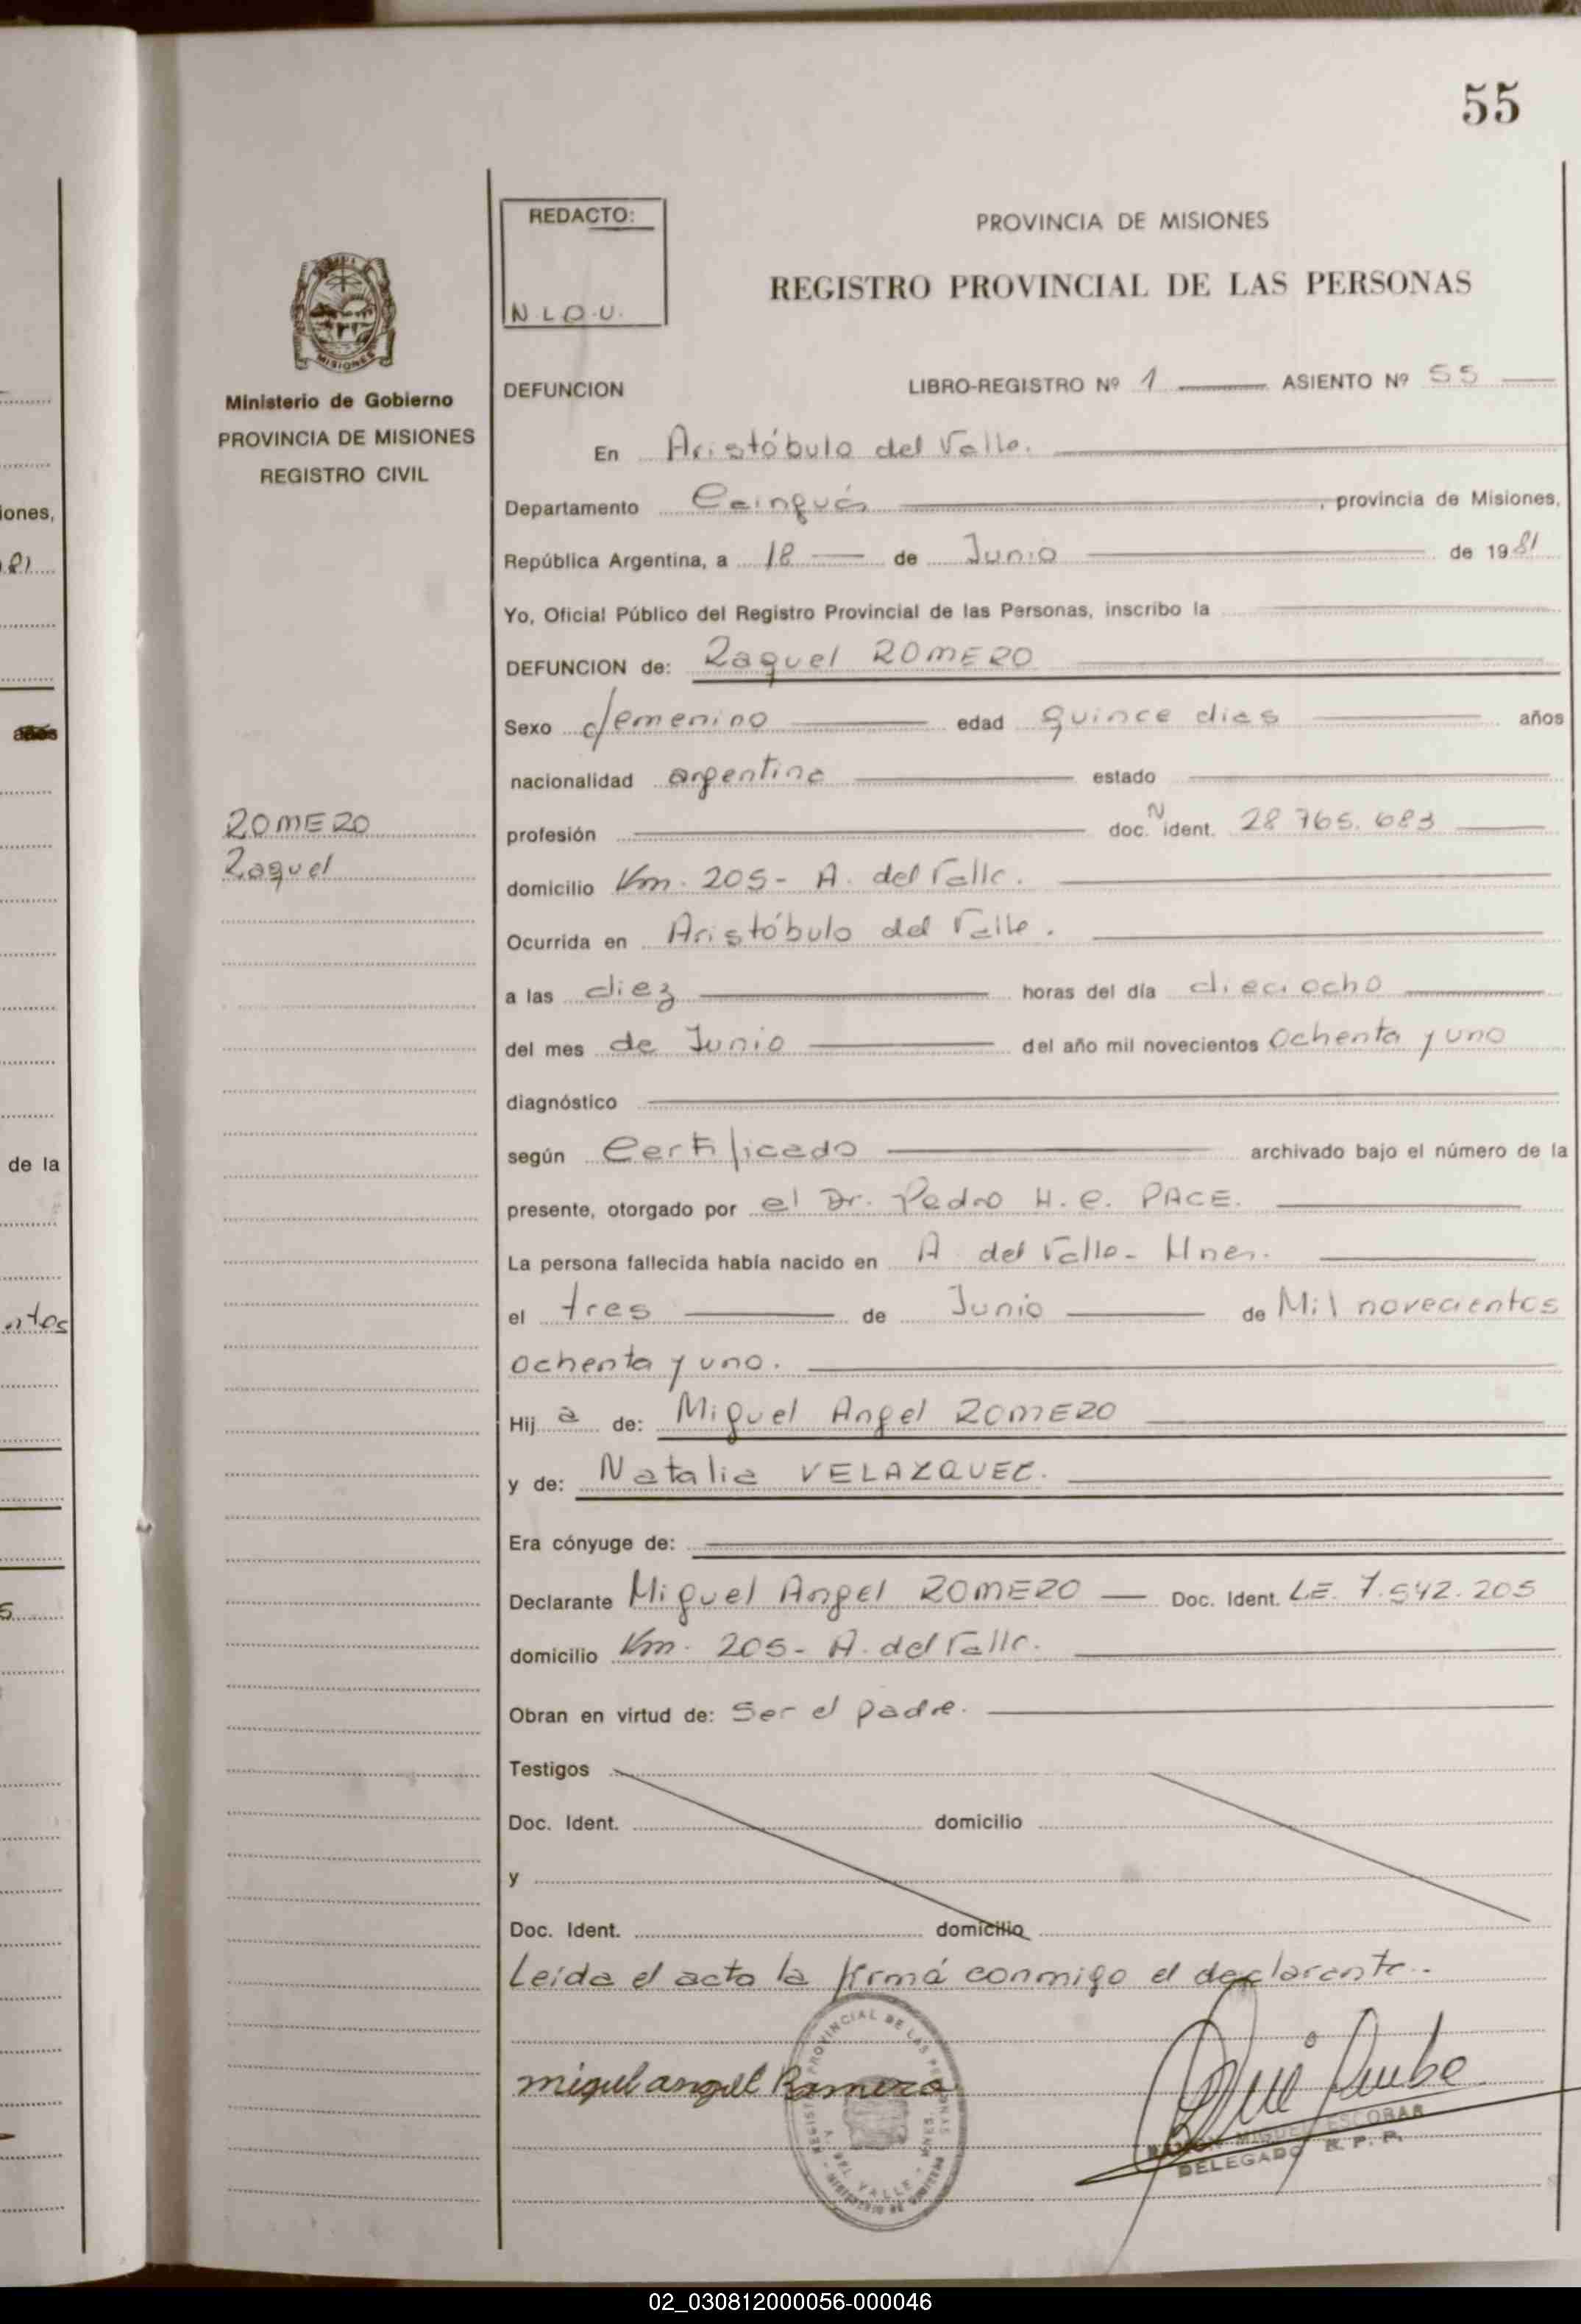 55
REDACTO:
N.L.D.U.
PROVINCIA DE MISIONES
REGISTRO PROVINCIAL DE LAS PERSONAS
MISIONES
Ministerio de Gobierno
PROVINCIA DE MISIONES
REGISTRO CIVIL
ROMERO
Raquel
DEFUNCION LIBRO-REGISTRO Nº 1 ASIENTO Nº 55
En Aristóbulo del Valle.
Departamento Cainguás, provincia de Misiones,
República Argentina, a 18 de Junio de 1981
Yo, Oficial Público del Registro Provincial de las Personas, inscribo la
DEFUNCION de: Raquel ROMERO
Sexo femenino edad quince dias años
nacionalidad argentina estado
profesión doc. N ident. 28.765.683
domicilio Km. 205- A. del Valle.
Ocurrida en Aristóbulo del Valle.
a las diez horas del día dieciocho
del mes de Junio del año mil novecientos Ochenta y uno
diagnóstico
según Certificado archivado bajo el número de la
presente, otorgado por el Dr. Pedro H. C. PACE.
La persona fallecida había nacido en A. del Valle- Mnes.
el tres de Junio de Mil novecientos
ochenta y uno.
Hij a de: Miguel Angel ROMERO
y de: Natalia VELAZQUEZ.
Era cónyuge de:
Declarante Miguel Angel ROMERO Doc. Ident. LE. 7.542.205
domicilio Km. 205- A. del Valle.
Obran en virtud de: Ser el padre.
Testigos
Doc. Ident. domicilio
y
Doc. Ident. domicilio
Leída el acta la firmá conmigo el declarante..
miguel angel Romero
RAMON MIGUEL ESCOBAR
DELEGADO R. P. P.
iones,
81
años
de la
ntos
5
02_030812000056-000046